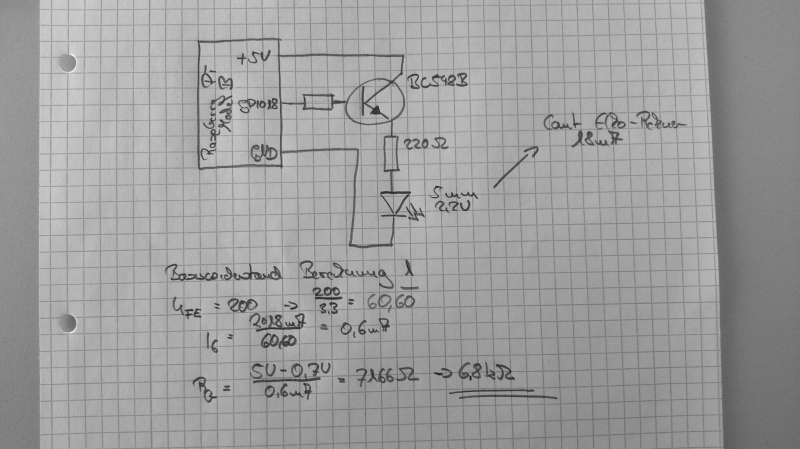 +5V
BC548B
Raspberry Pi
Model B
GPIO18
GND
220Ω
5mm
2,2V
Laut Elko-Rechner
18mA
Basiswiderstand Berechnung 1
hFE = 200 → 200/3,3 = 60,60
IB = 2018mA/60,60 = 0,6mA
RB = 5V-0,7V/0,6mA = 7166Ω → 6,8kΩ